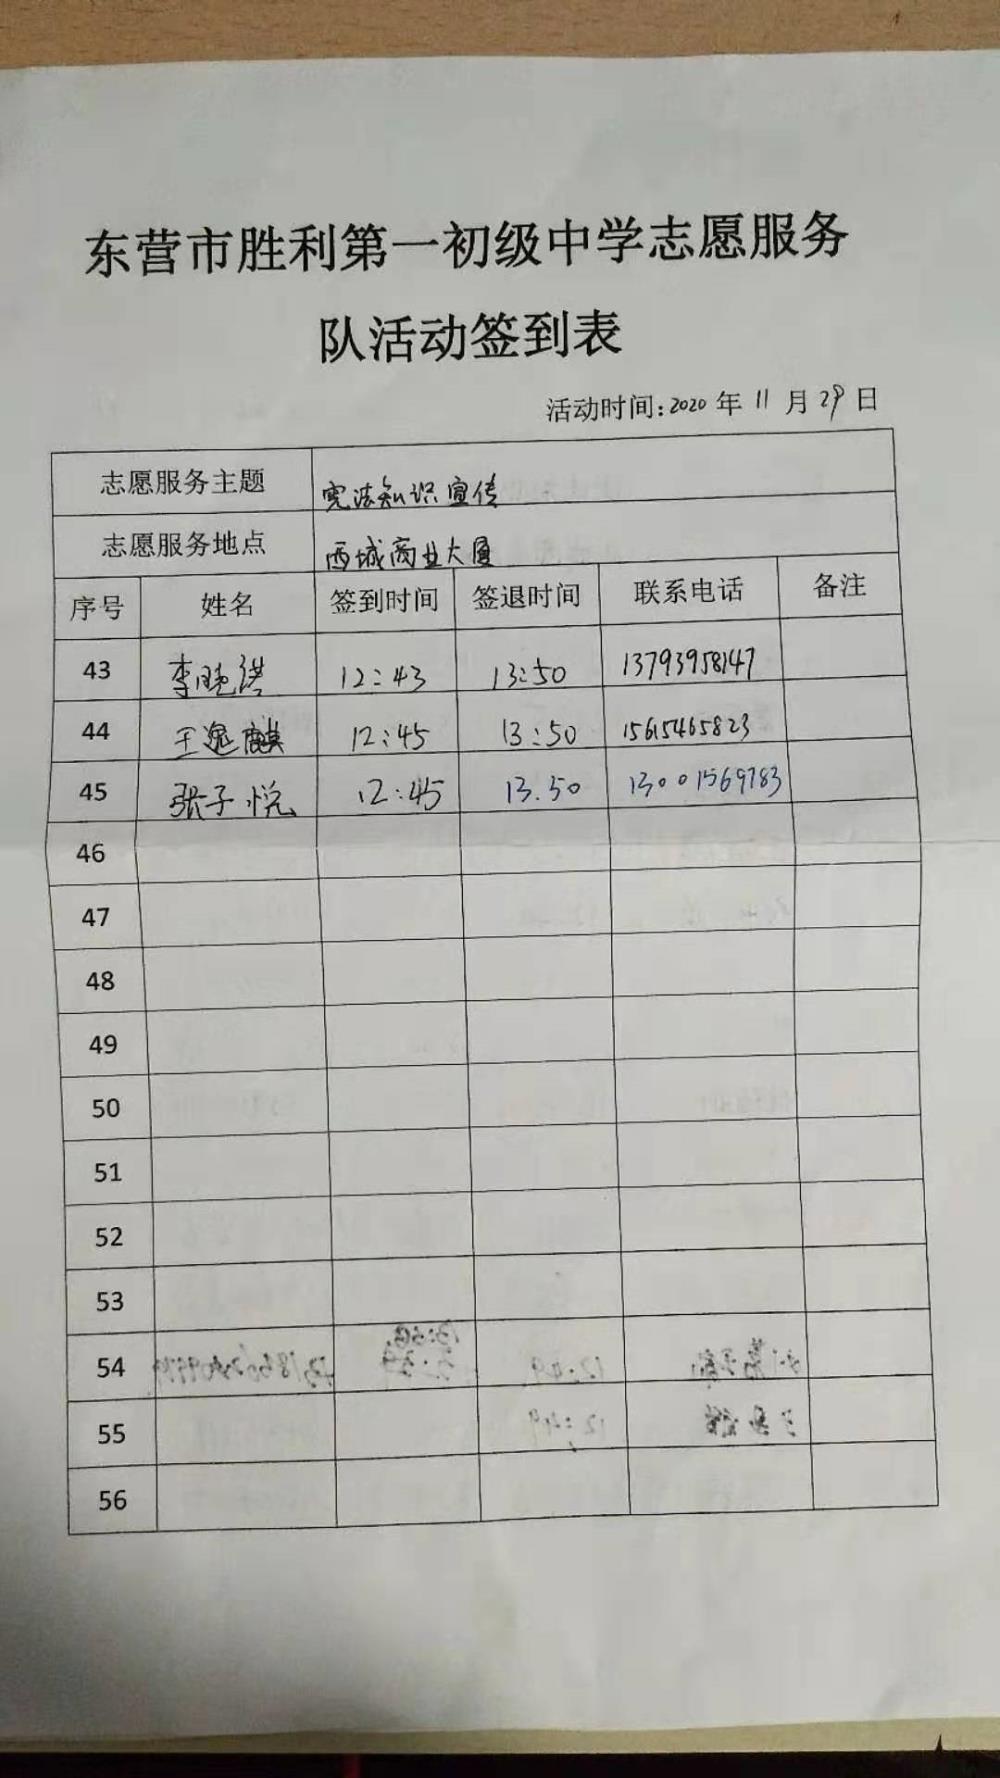 东营市胜利第一初级中学志愿服务
队活动签到表
活动时间:2020年11月29日
志愿服务主题 宪法知识宣传
志愿服务地点 西城商业大厦
序号 姓名 签到时间 签退时间 联系电话 备注
43 李晓洪 12:43 13:50 13793958147
44 王逸麒 12:45 13:50 15615465823
45 张子悦 12:45 13.50 13001569783
46
47
48
49
50
51
52
53
54
55
56